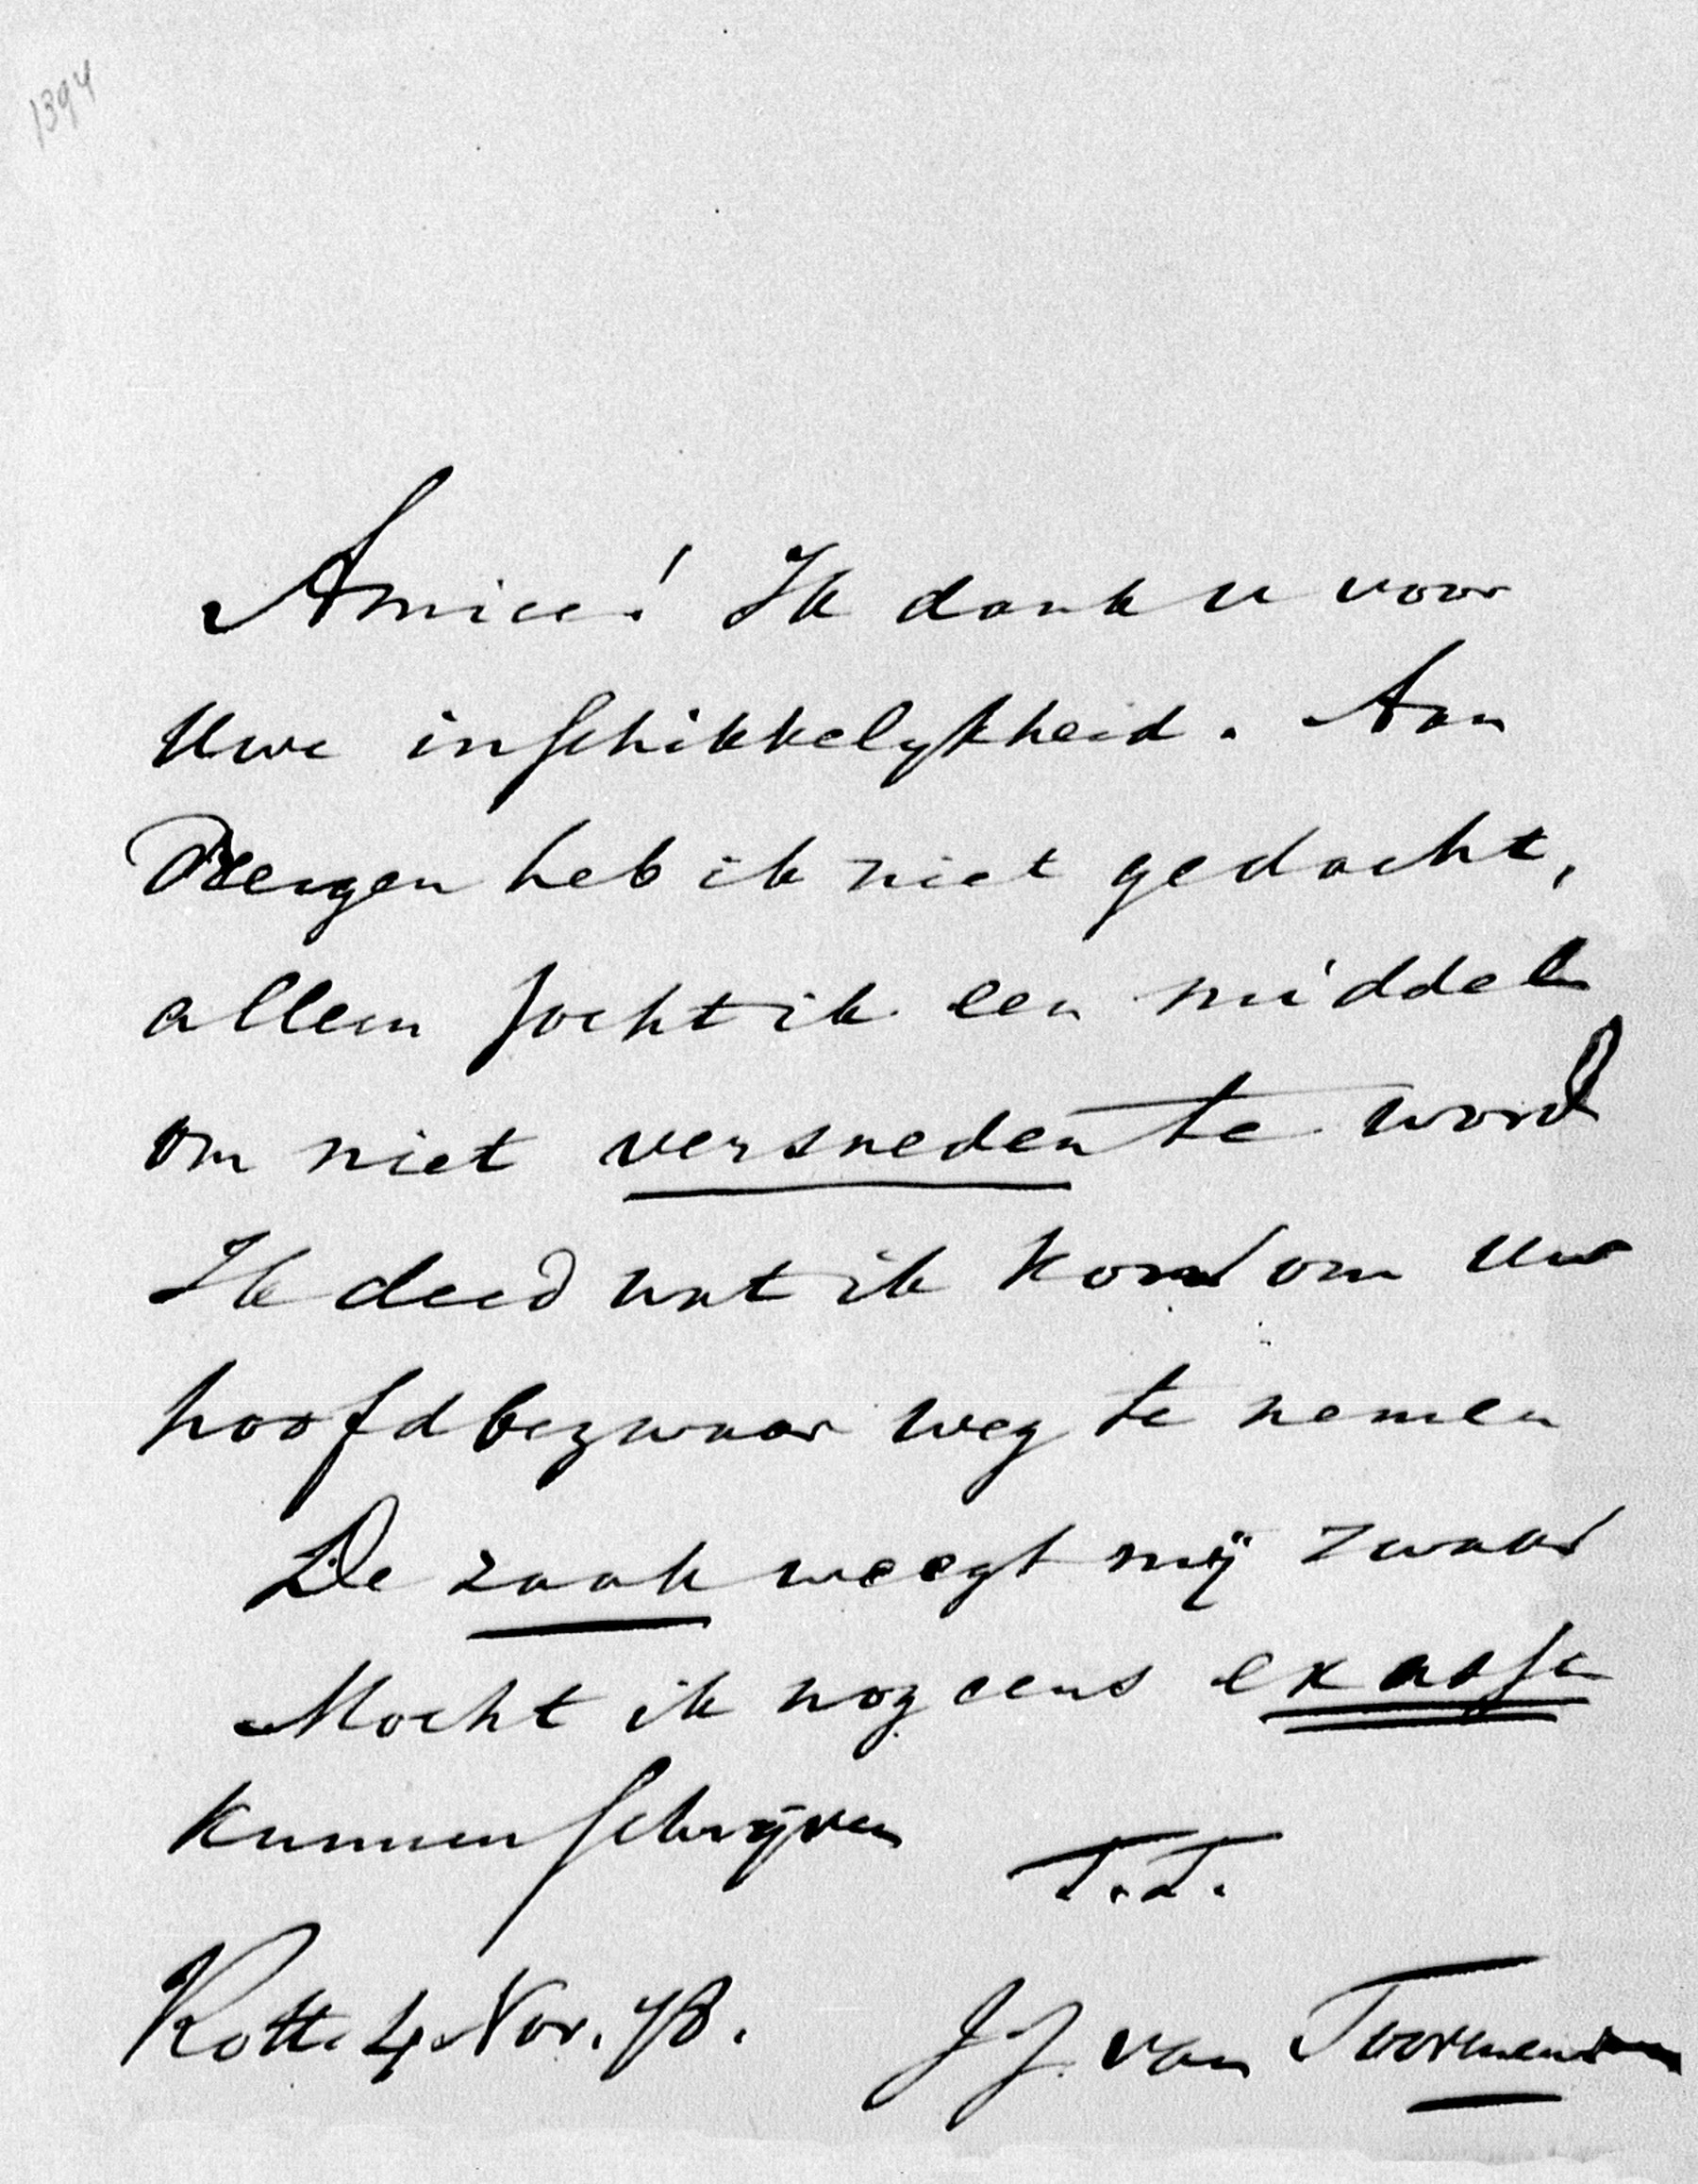 1394
Amice! Ik dank u voor
Uwe inschikkelykheid. Aan
Bergen heb ik niet gedacht,
alleen socht ik een middel
om niet versneden te word
Ik deed wat ik kond om Uw
hoofdbezwaar weg te nemen
De zaak weegt mij zwaar
Mocht ik nog eens ex asse
kunnen schrijven
T.T.
Rott. 4 Nov. 78.
J J. van Toorenen